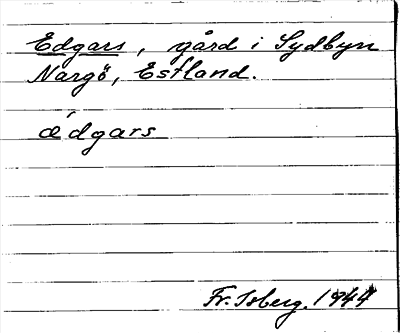 Edgars, gård i Sydbyn
Nargö, Estland.
ǽdgars
Fr. Isberg. 1944